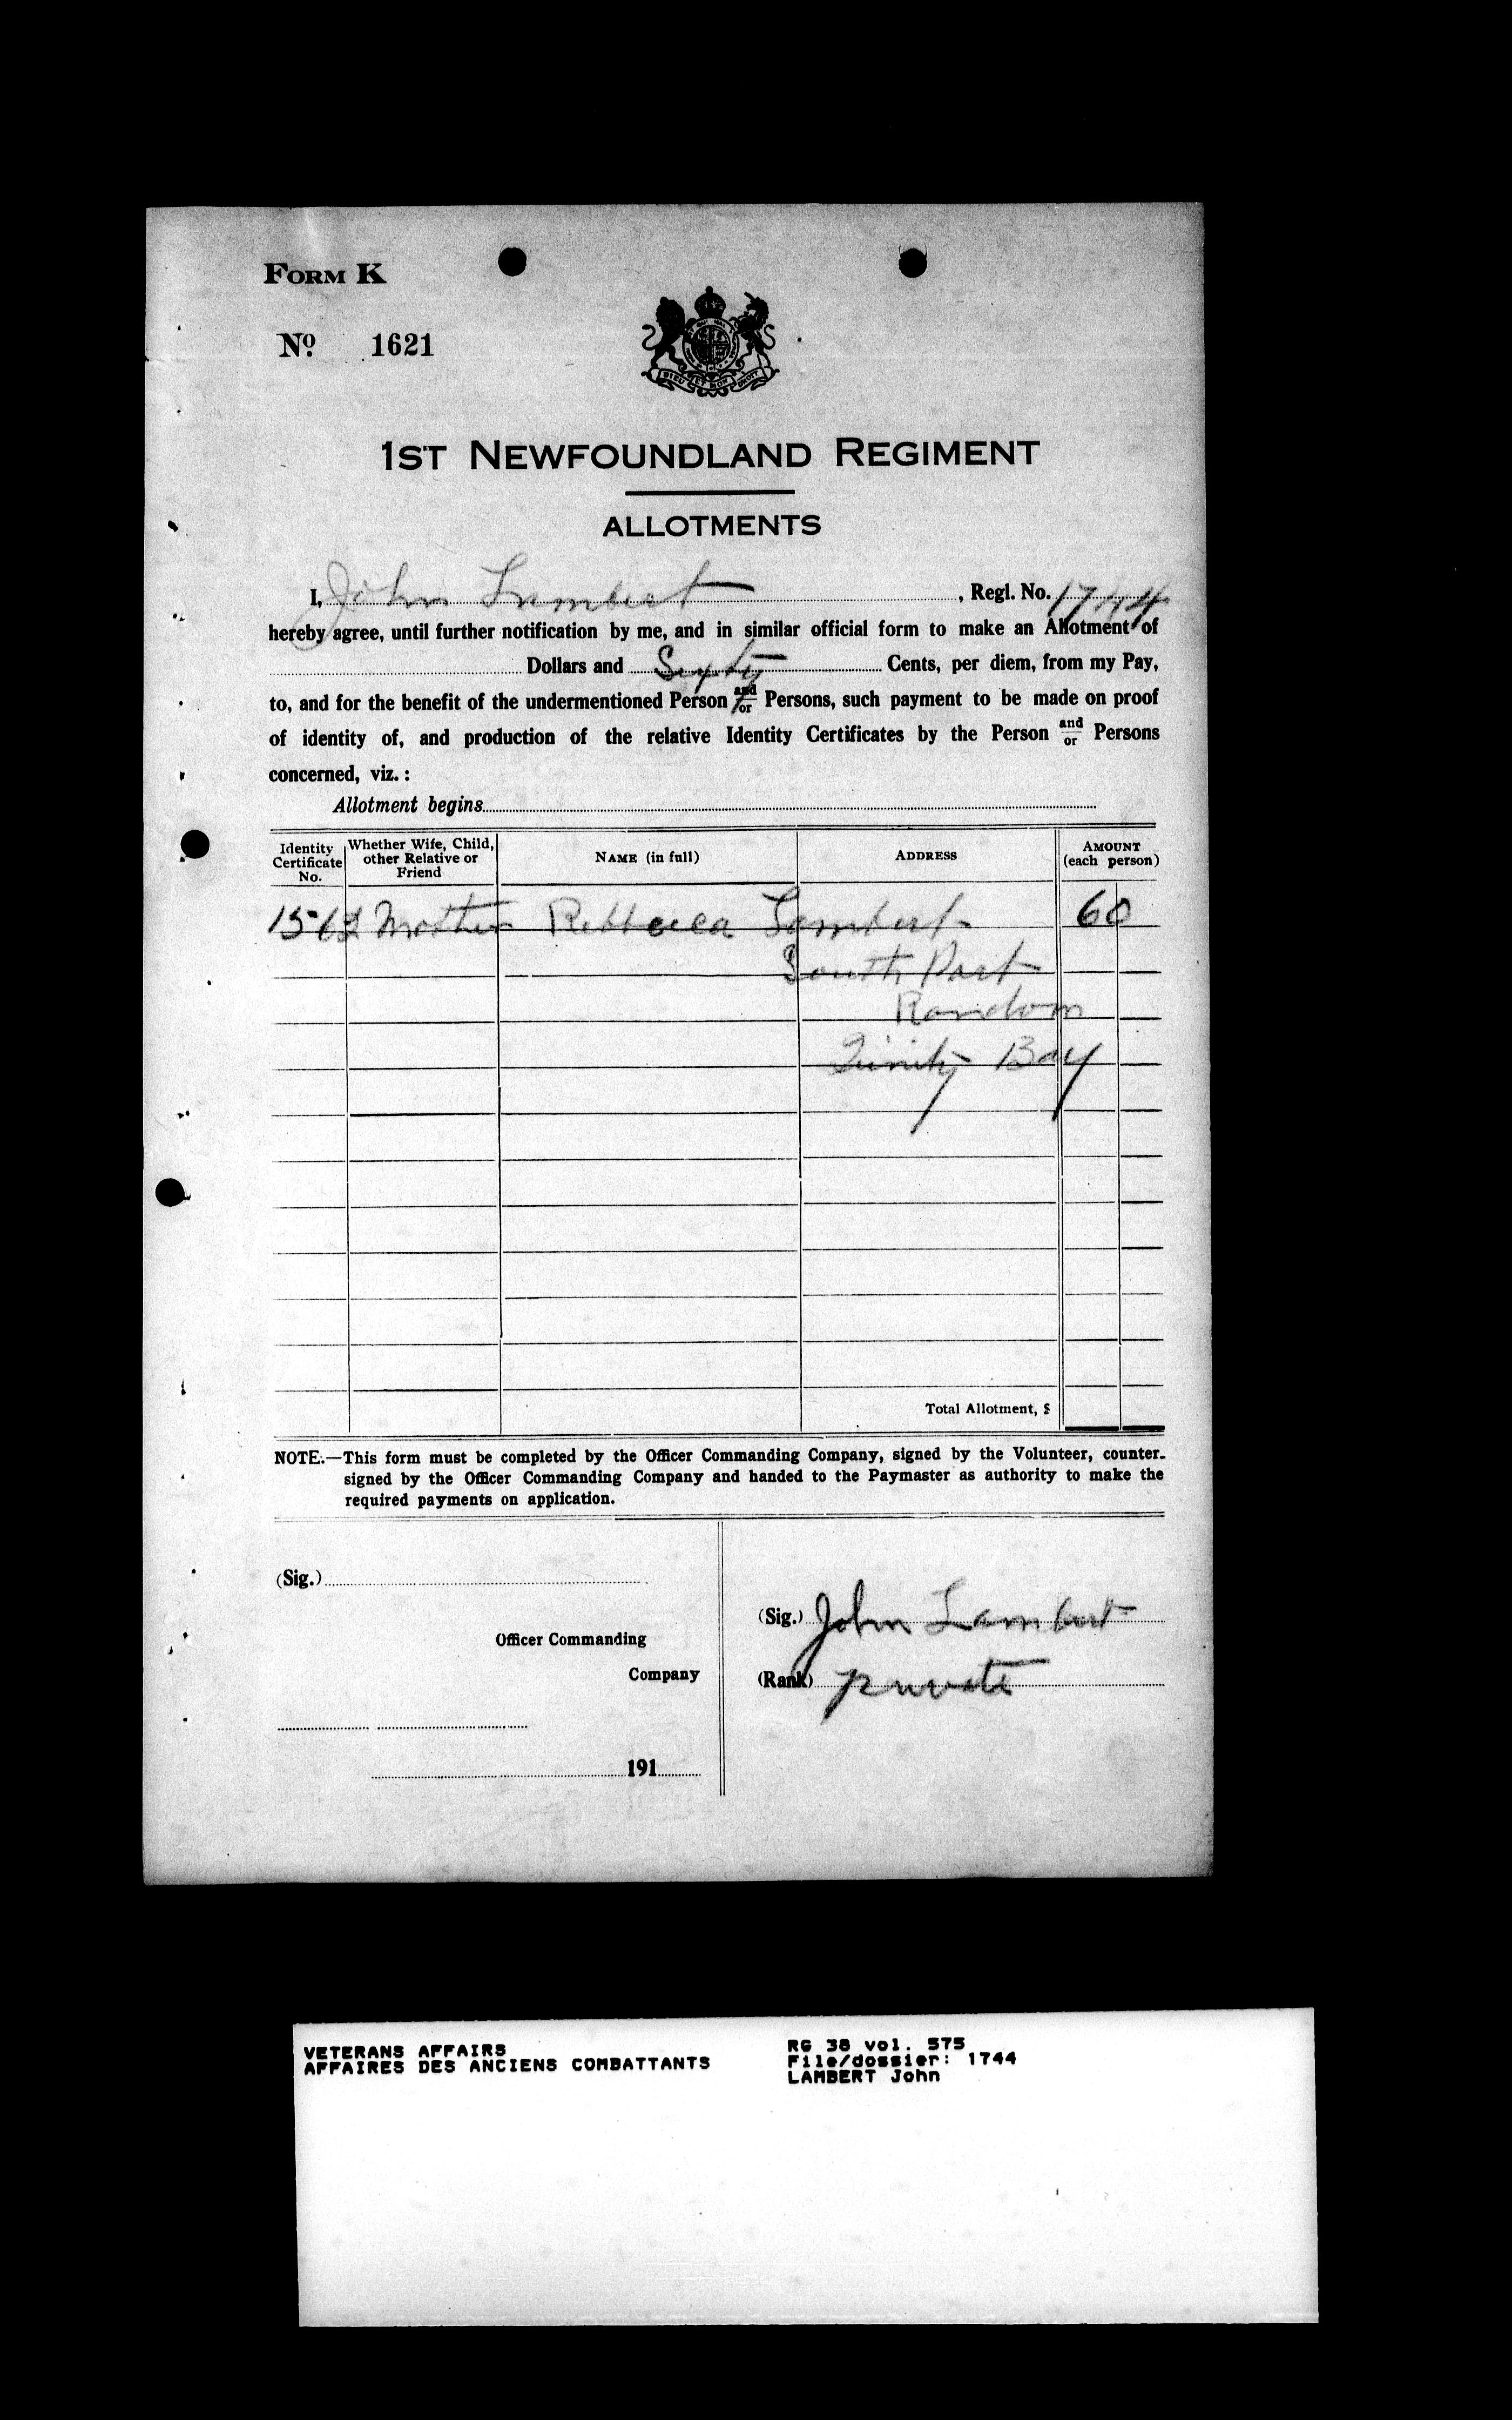 FORM K
Nº 1621
DIEU ET MON DROIT
1ST NEWFOUNDLAND REGIMENT
ALLOTMENTS
I, John Lambert, Regl. No. 1744
hereby agree, until further notification by me, and in similar official form to make an Allotment of
Dollars and Sixty Cents, per diem, from my Pay,
to, and for the benefit of the undermentioned Person and/or Persons, such payment to be made on proof
of identity of, and production of the relative Identity Certificates by the Person and/or Persons
concerned, viz. :
Allotment begins
Identity Certificate No. Whether Wife, Child, other Relative or Friend NAME (in full) ADDRESS AMOUNT (each person)
Mother Rebbecca Lambert 60
South Port
Random
Trinity Bay
Total Allotment, $
NOTE.—This form must be completed by the Officer Commanding Company, signed by the Volunteer, counter-
signed by the Officer Commanding Company and handed to the Paymaster as authority to make the
required payments on application.
(Sig.)
Officer Commanding
Company
191
(Sig.) John Lambert
(Rank) private
VETERANS AFFAIRS
AFFAIRES DES ANCIENS COMBATTANTS
RG 38 vol. 575
File/dossier: 1744
LAMBERT John